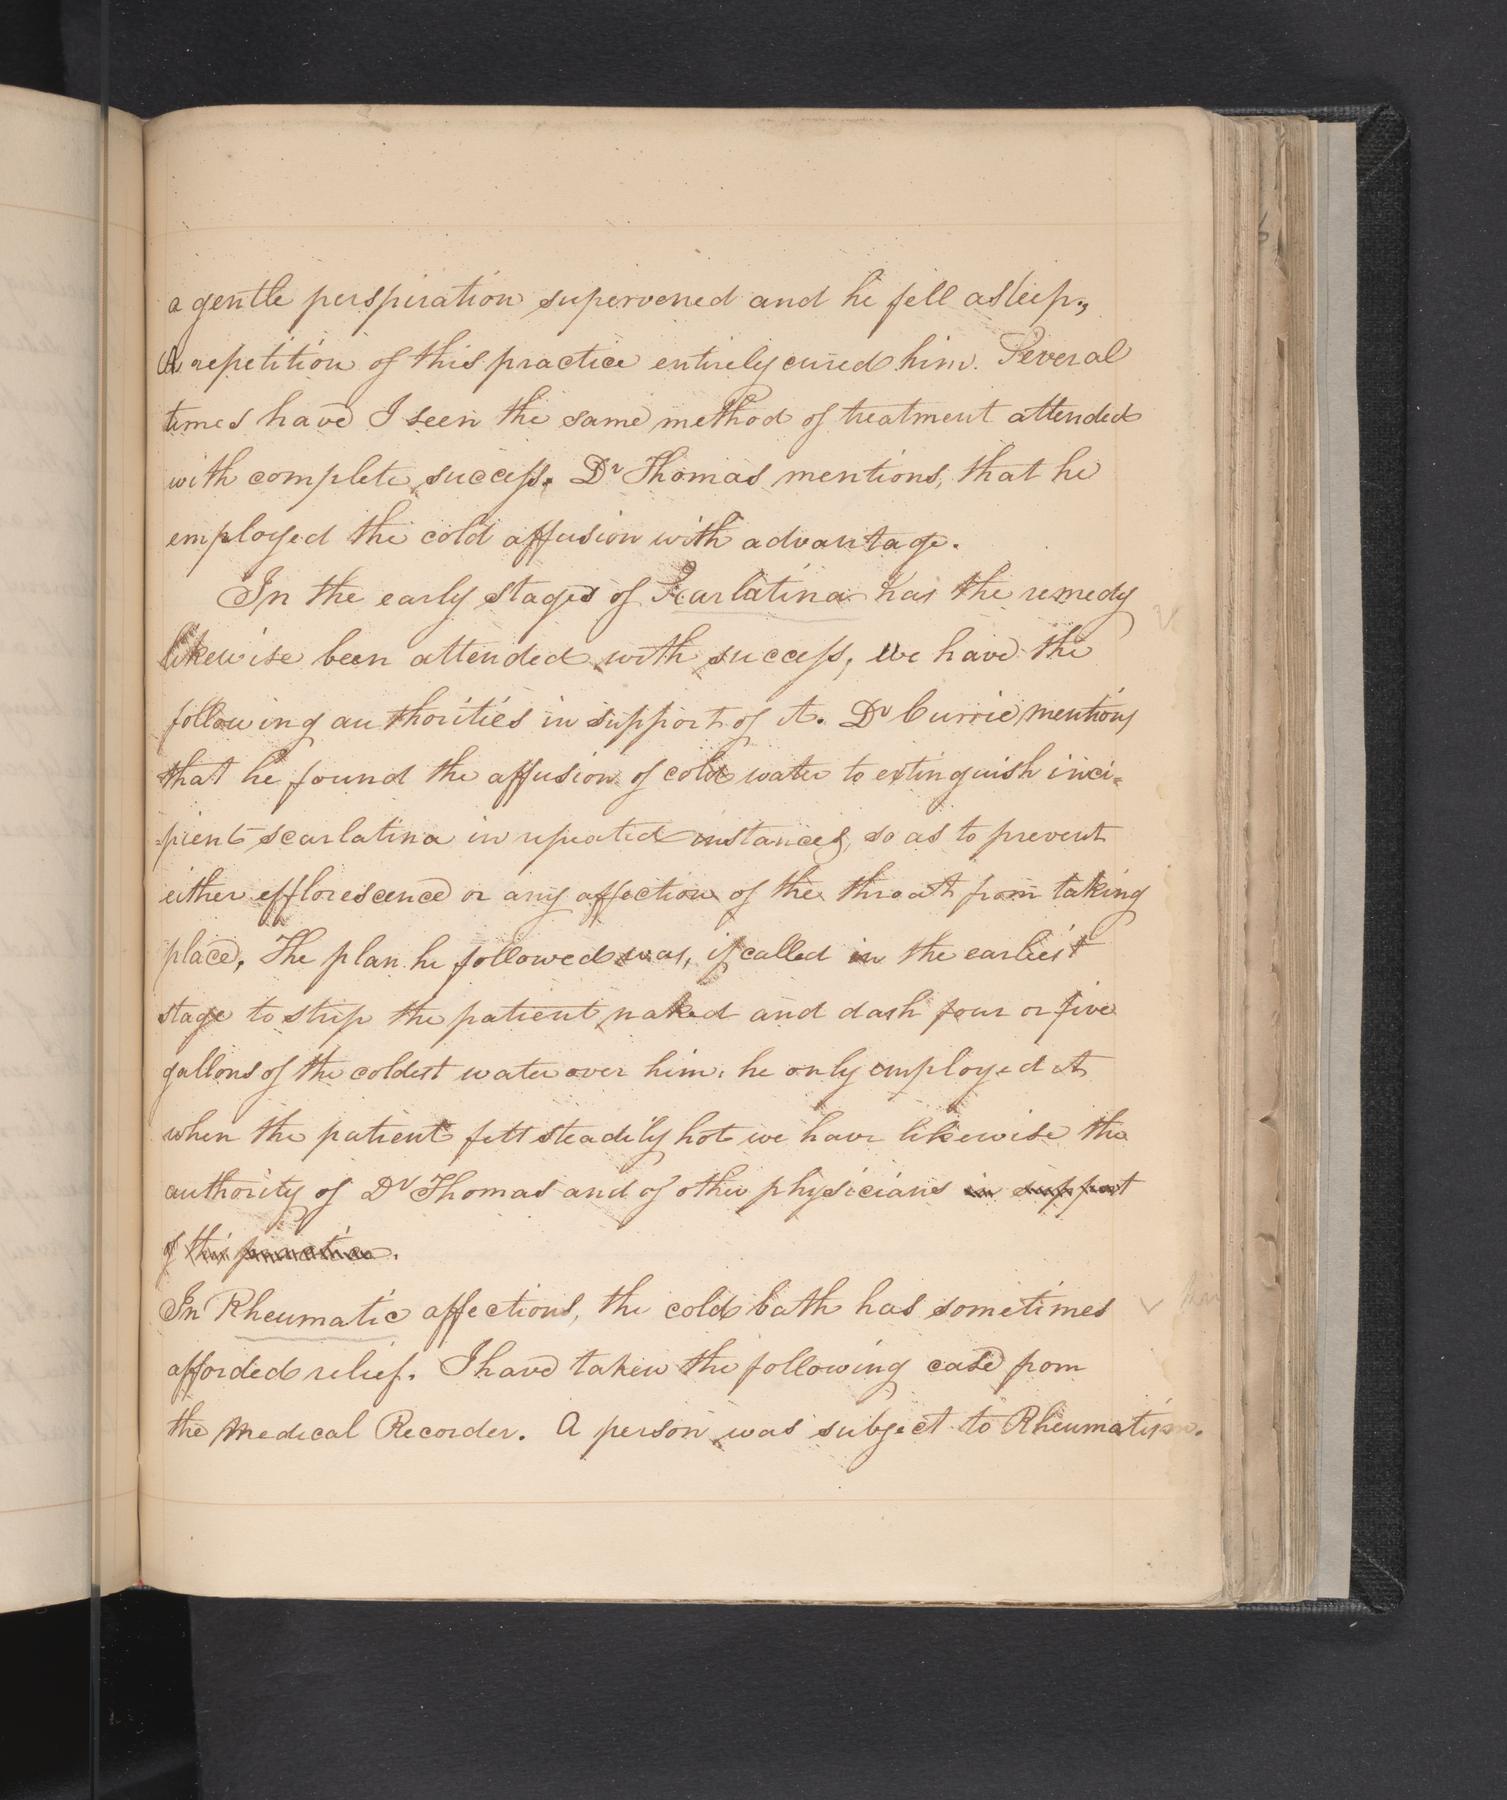 a gentle perspiration supervened and he fell asleep.,
A repetition of this practice entirely cured him. Several
times have I seen the same method of treatment attended
with complete success. Dr Thomas mentions, that he
employed the cold affusion with advantage.
In the early stages of Scarlatina has the remedy
likewise been attended with success, we have the
following authorities in support of it. Dr Currie mentions
that he found the affusion of cold water to extinguish inci=
pient scarlatina in repeated instances, so as to prevent
either efflorescence or any affection of the throat from taking
place, The plan he followed was, if called in the earliest
stage to strip the patient naked and dash four or five
gallons of the coldest water over him, he only employed it
when the patient felt steadily hot we have likewise the
authority of Dr Thomas and of other physicians in support
of this practice.
In Rheumatic affections, the cold bath has sometimes
afforded relief. I have taken the following case from
the Medical Recorder. A person was subject to Rheumatism.